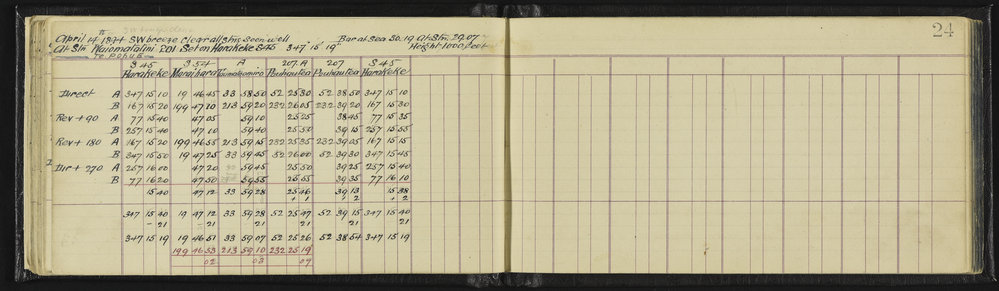 24
April 14th 1894 SW breeze Clear all Stns Seen well Bar at Sea 30.19 At Stn. 29.07
At Stn Set on Harakeke S45 347° 15' 19" Height 1000 feet
Te Popua
S 45 S 52 A 207.A 207 S 45
Harakeke Puuhautea Puuhautea Harakeke
Direct A 347 15 10 19 46 45 33 58 50 52 25 30 52 38 50 347 15 10
B 167 15 20 199 47 10 213 59 20 232 26 05 232 39 20 167 15 30
Rev + 90 A 77 15 40 47 05 59 10 25 25 38 45 77 15 35
B 257 15 40 47 10 59 40 25 50 39 15 257 15 55
Rev + 180 A 167 15 20 199 46 55 213 59 15 232 25 35 232 39 05 167 15 15
B 347 15 50 19 47 25 33 59 45 52 26 00 52 39 30 347 15 45
Dir + 270 A 257 16 00 47 20 59 45 25 50 39 25 257 15 40
B 77 16 20 47 50 59 55 26 55 39 35 77 16 10
15 40 47 12 33 59 28 25 46 39 13 15 38
+ 1 + 2 + 2
347 15 40 19 47 12 33 59 28 52 25 47 52 39 15 347 15 40
- 21 - 21 21 21 21 21
347 15 19 19 46 51 33 59 07 52 25 26 52 38 54 347 15 19
199 46 53 213 59 10 232 25 19
02 03 07